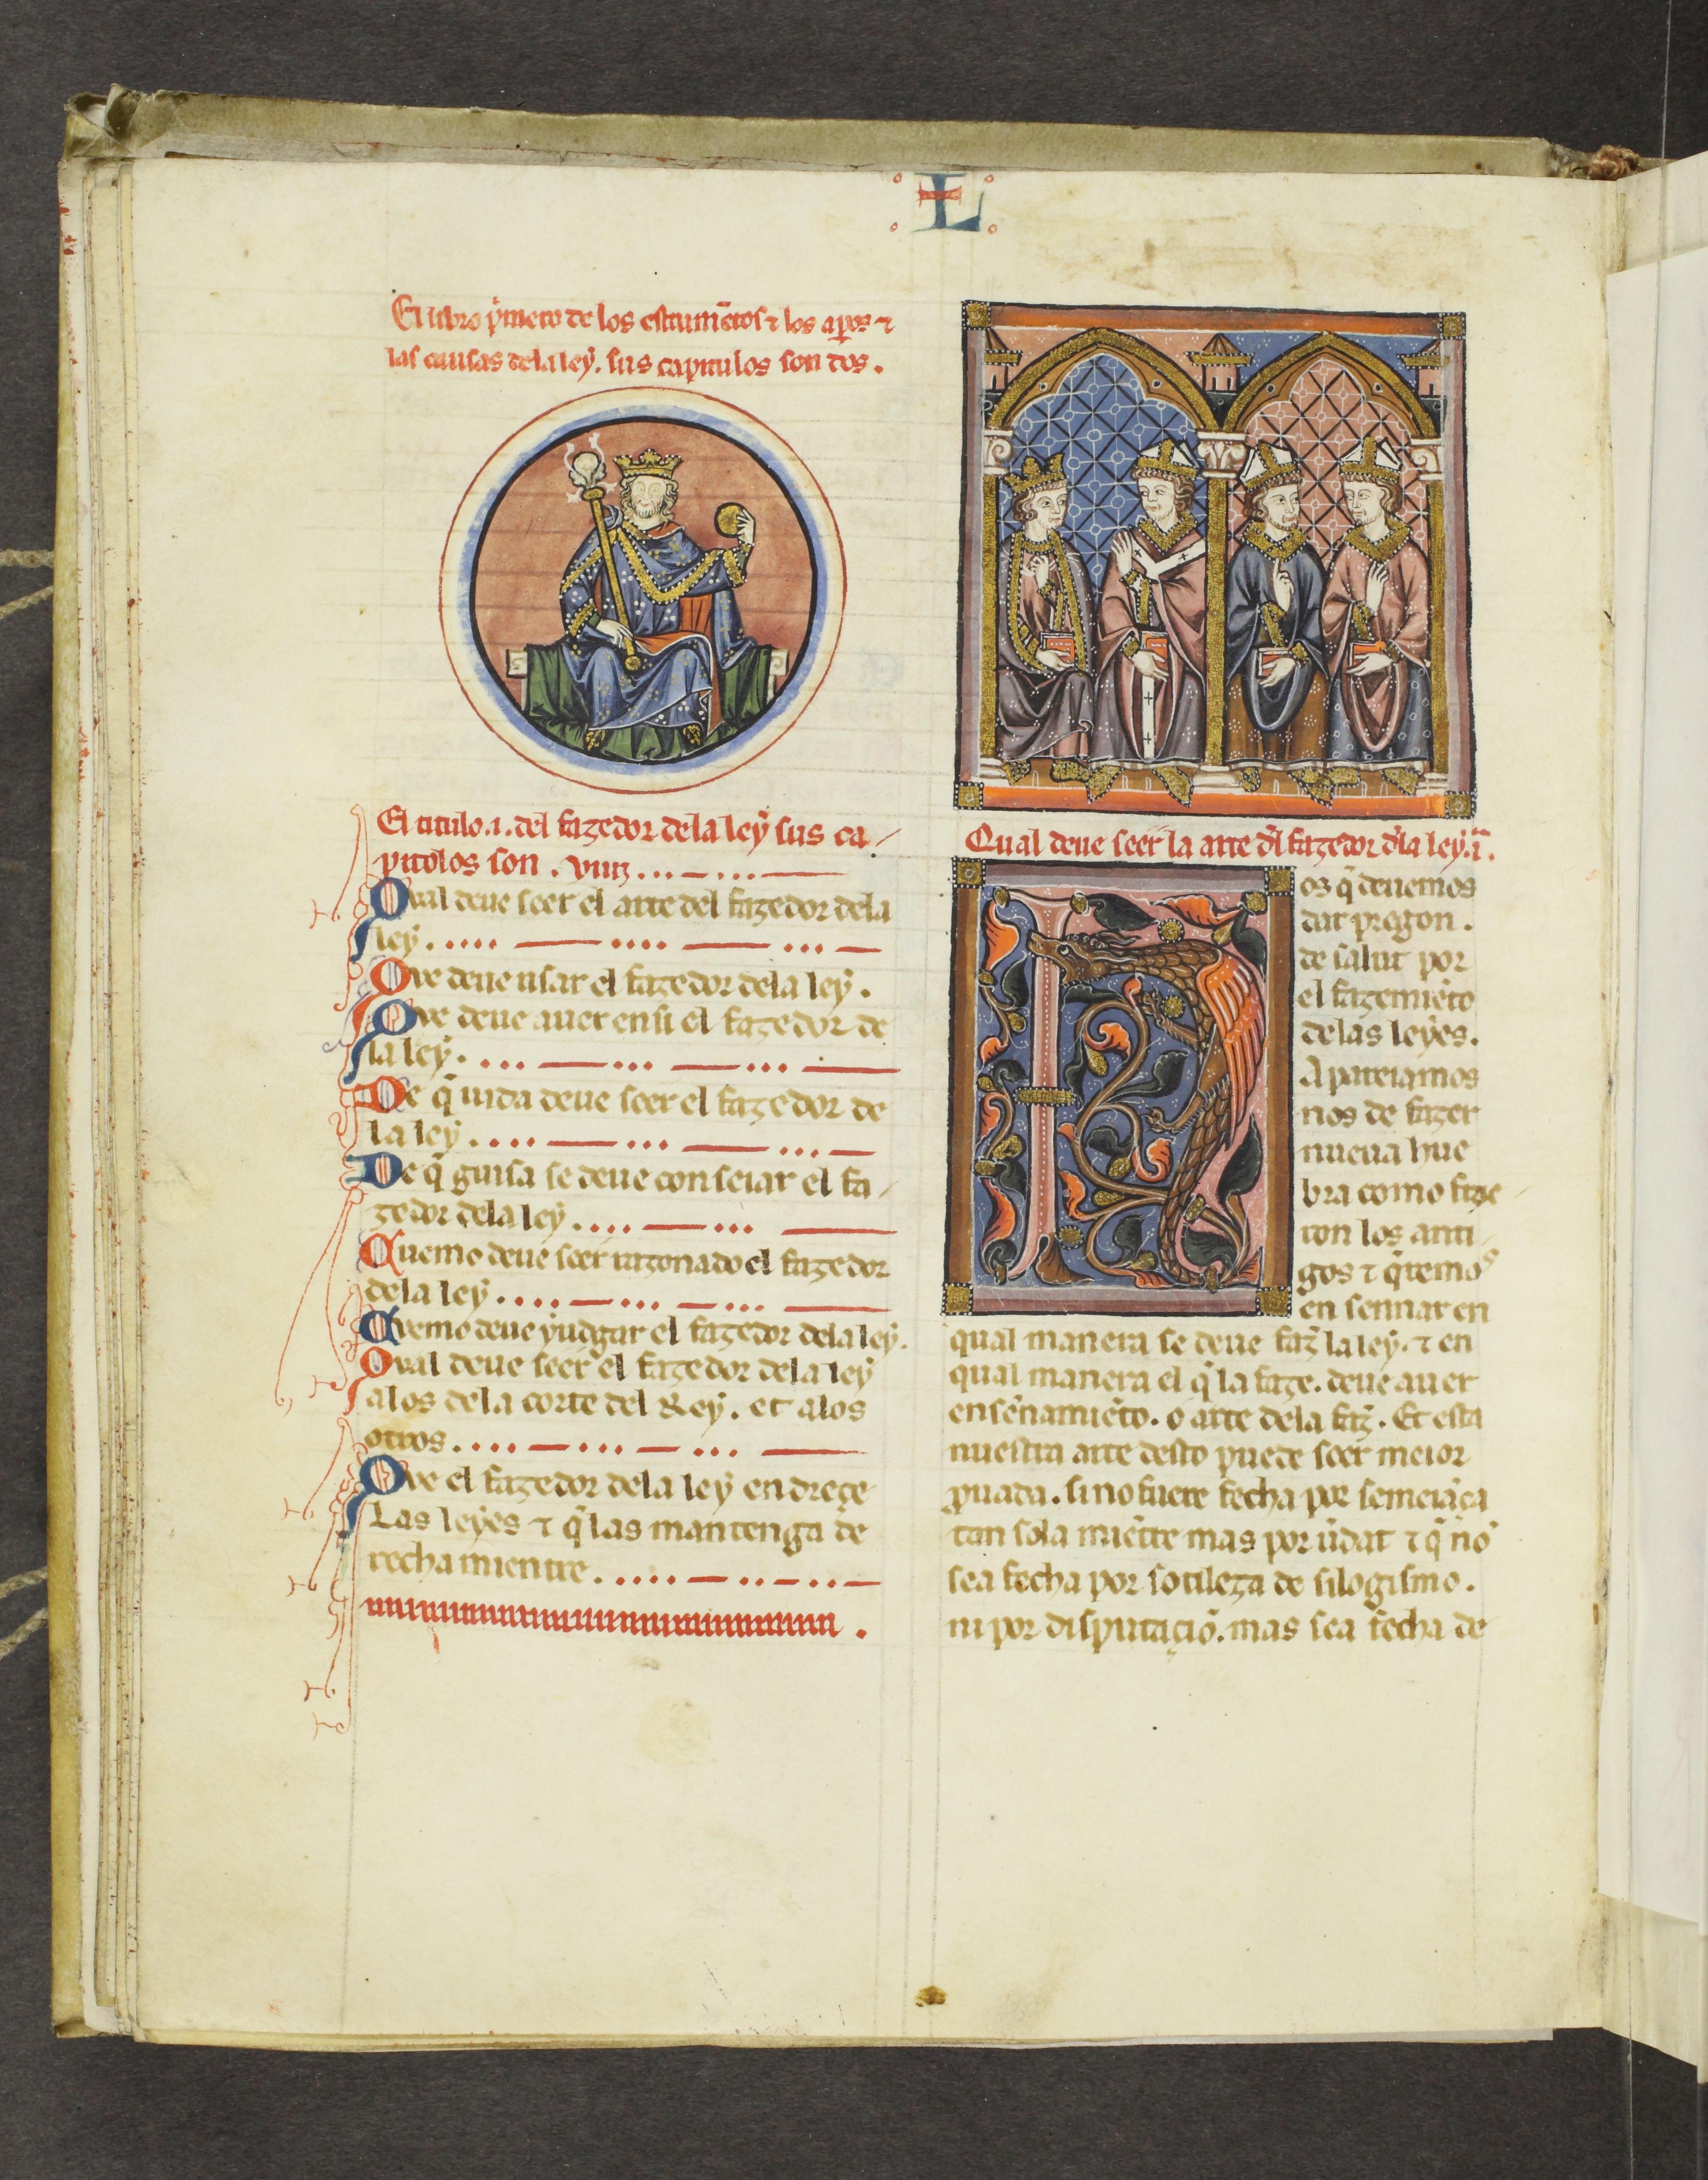 L
El libro p̃mero de los estrumẽtos ⁊ los apos ⁊
las causas dela ley. sus capitulos son dos.
El titulo .i. del fazedor dela ley sus ca
pitolos son . viiij...
Qval deue seer el arte del fazedor dela
ley....
Qve deue usar el fazedor dela ley.
Qve deue auer en si el fazedor de
la ley....
De q̃ uida deue seer el fazedor de
la ley....
De q̃ guisa se deue conseiar el fa
zedor dela ley....
Quemo deue seer razonado el fazedor
dela ley....
Qvemo deue yudgar el fazedor dela ley.
Qval deue seer el fazedor dela ley
alos dela corte del Rey. et alos
otros....
Qve el fazedor dela ley endreçe
Las leyes ⁊ q̃ las mantenga de
rechamientre.....
Qual deue seer la arte dl̃ fazedor dl̃a ley .i.
N
os q̃ deuemos
dar pregon.
de salut por
el fazemiẽto
delas leyes.
Apareiamos
nos de fazer
nueua hue
bra como fize
ron los anti
gos ⁊ q̃remos
en sennar en
qual manera se deue faz̃ la ley. ⁊ en
qual manera el q̃ la faze. deue auer
ensẽnamiẽto. o arte dela faz̃. Et esta
nuestra arte desto puede seer meior
ꝓuada. si no fuere fecha por semeiãça
tan sola miẽtre mas por ũdat ⁊ q̃ no
sea fecha por sotileza de silogismo.
ni por disputaçiõ. mas sea fecha de